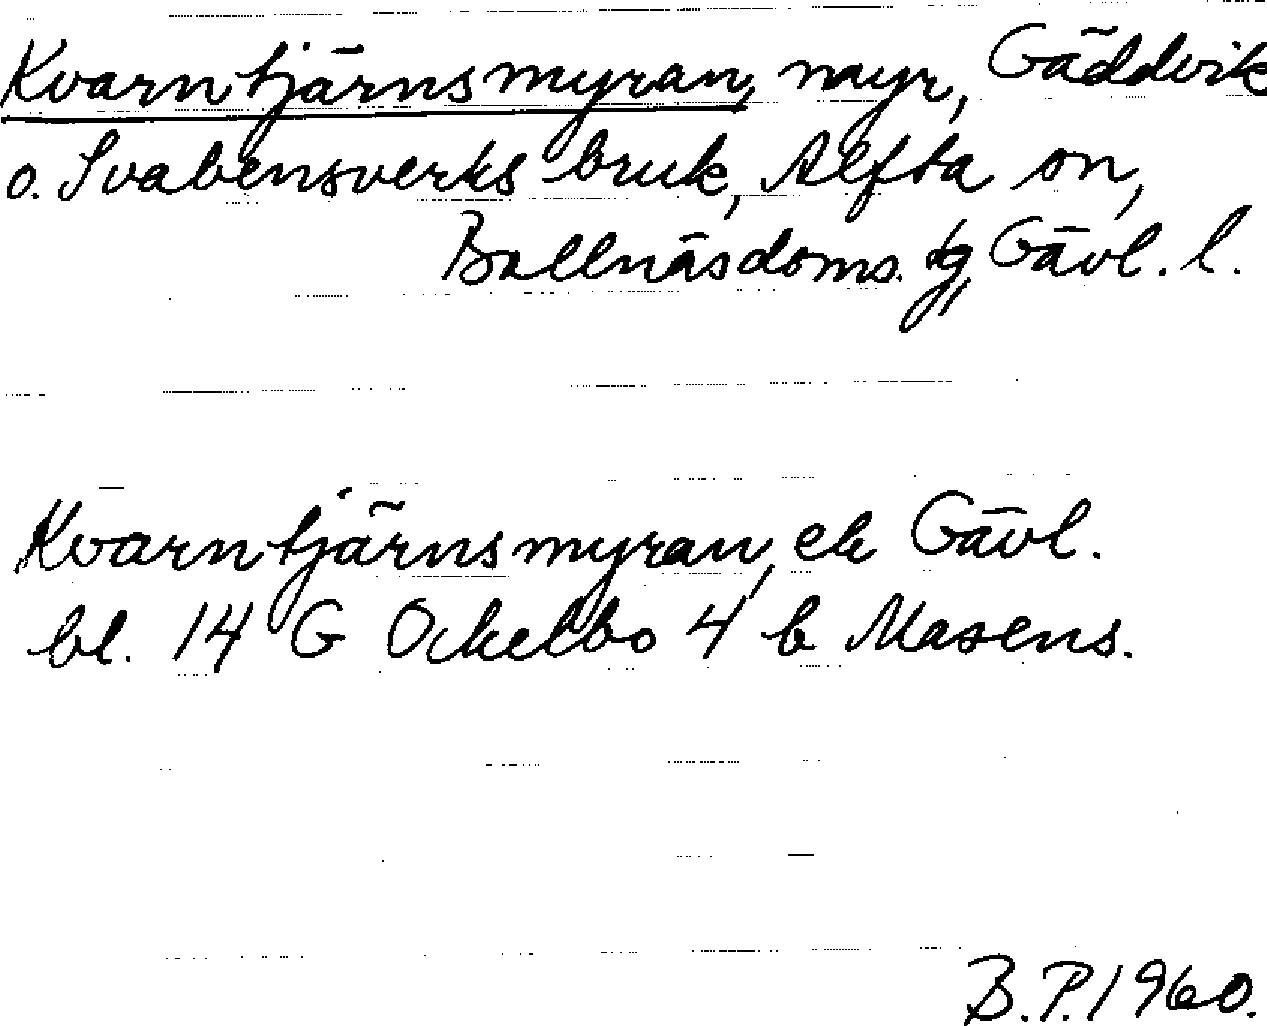 Kvarntjärnsmyran, myr, Gäddvik
o. Svabensverks bruk, Alfta sn,
Bollnäsdoms. dg, Gävl. l.
Kvarntjärnsmyran, ek Gävl.
bl. 14 G Ockelbo 4 b Masens.
B.P. 1960.